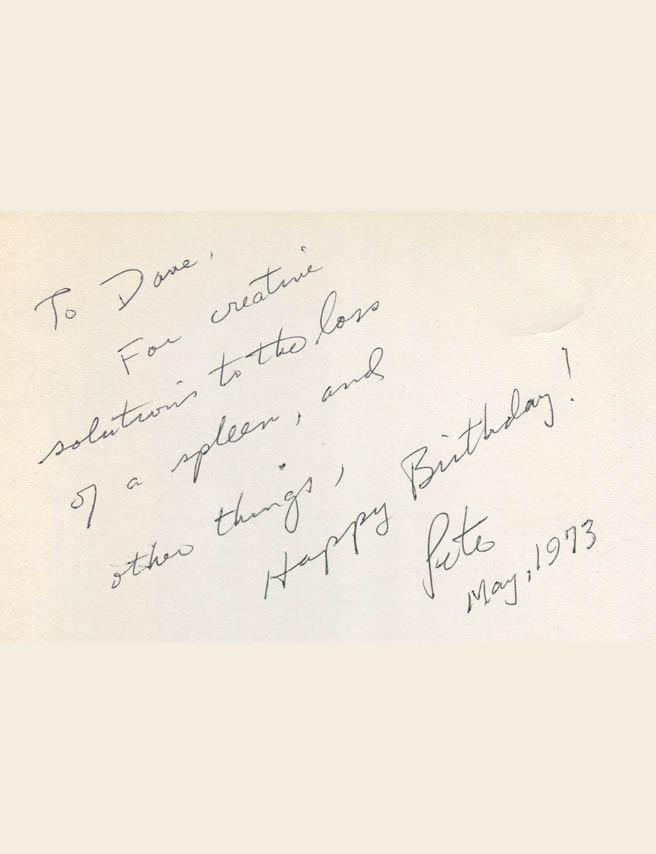 To Dave,
For creative
solutions to the loss
of a spleen, and
other things,
Happy Birthday!
Pete
May, 1973